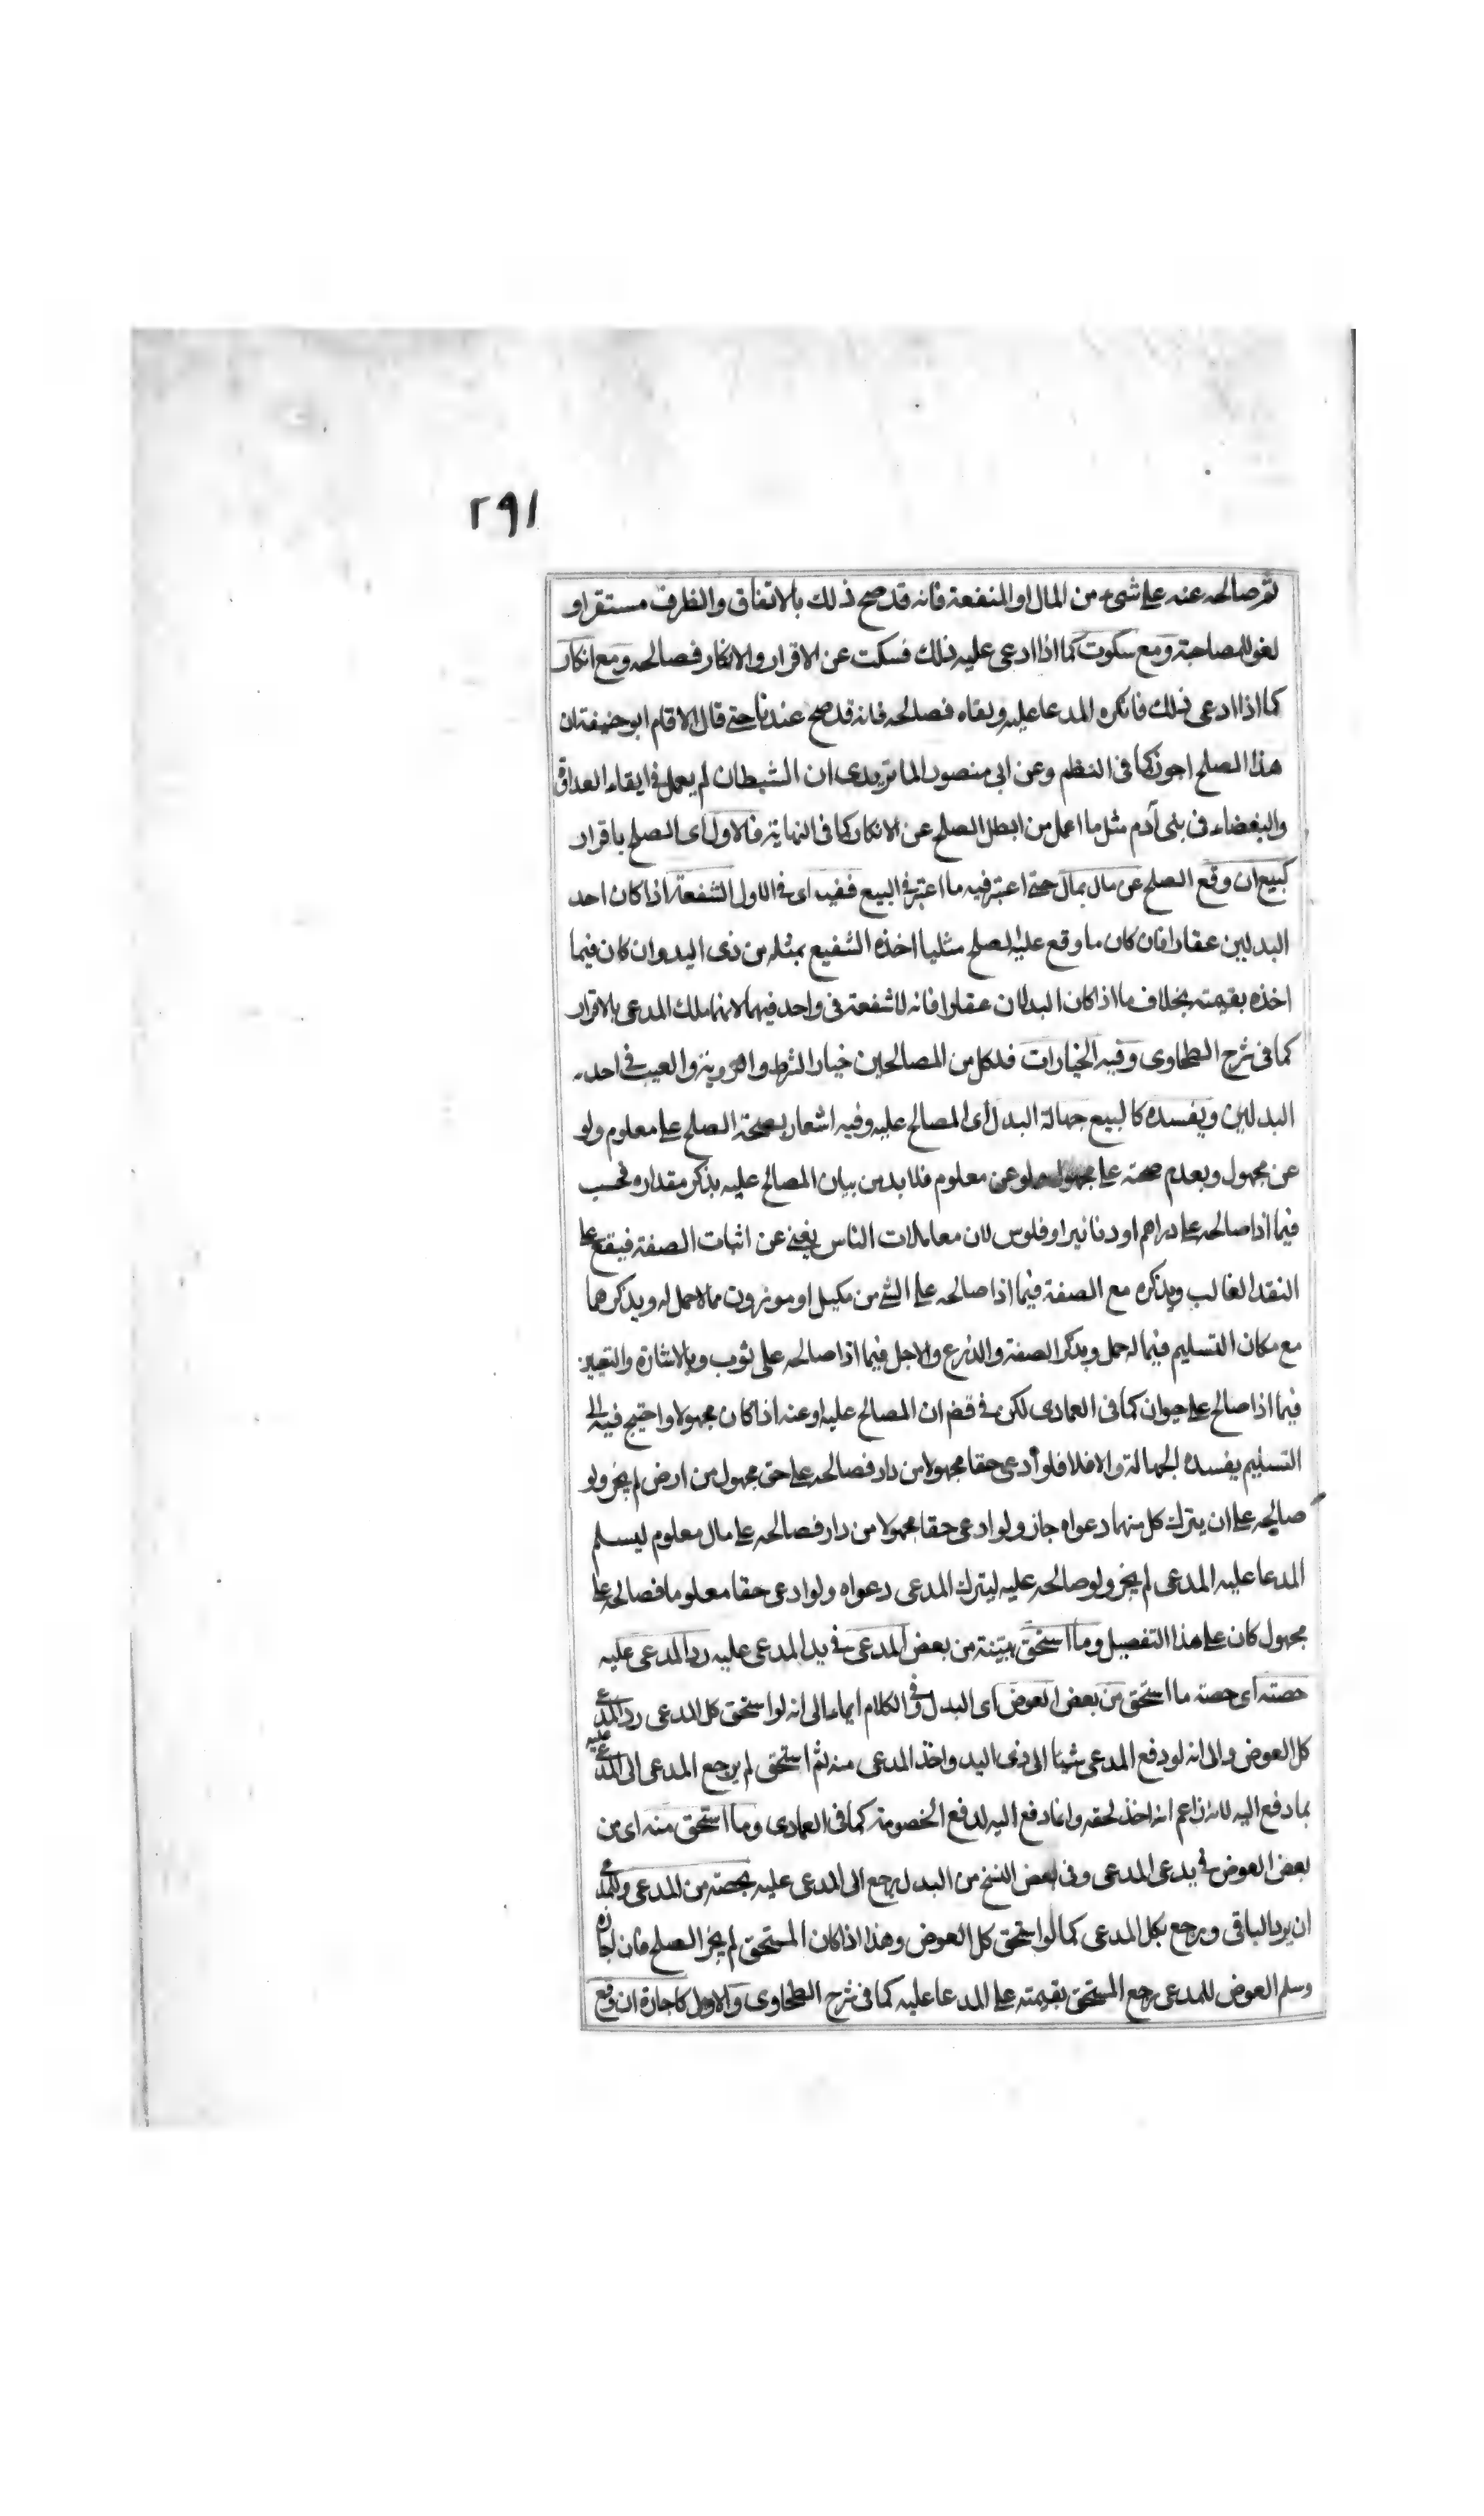 ٢٩١
ثم صالحه عنه على شىء من المال او المنفعة فانه قد صح ذلك بالاتفاق والظرف مستقر او
لغو للمصاحبة ومع سكوت كما اذا ادعى عليه ذلك فسكت عن الاقرار والانكار فصالحه ومع انكار
كما اذا ادعى ذلك فانكره المدعا عليه ونفاه فصالحه فانه قد صح عندنا حتى قال الامام ابو حنيفة ان
هذا الصلح اجوز كما فى النظم وعن ابى منصور الماتريدى ان الشيطان لم يعمل فى ايقاء العداوة
والبغضاء فى بنى آدم مثل ما اعمل من ابطل الصلح عن الانكار كما فى النهاية فالاول اى الصلح باقرار
كبيع ان وقع الصلح عن مال بمال حتى اعتبر فيه ما اعتبر فى البيع ففيه اى فى الاول الشفعة اذا كان احد
البدلين عقارا فان كان ما وقع عليه الصلح مثليا اخذه الشفيع بمثله من ذى اليد وان كان قيما
اخذه بقيمته بخلاف ما اذا كان البدلان عقارا فانه لا شفعة فى واحد فيهما لانهما ملك المدعى بالاقرار
كما فى شرح الطحاوى وفيه الخيارات فلكل من المصالحين خيار الشرط والرؤية والعيب فى احد
البدلين ويفسده كالبيع جهالة البدل اى المصالح عليه وفيه اشعار بصحة الصلح على معلوم ولو
عن مجهول وبعدم صحته على مجهول ولو عن معلوم فلا بد من بيان المصالح عليه بذكر مقداره فحسب
فيما اذا صالحه على دراهم او دنانير او فلوس لان معاملات الناس يغنى عن اثبات الصفة فيقع على
النقد الغالب ويذكره مع الصفة فيما اذا صالحه على الشئ من مكيل او موزون مما لا حمل له ويذكرهما
مع مكان التسليم فيما له حمل ويذكر الصفة والذرع والاجل فيما اذا صالحه على ثوب وبالاشارة والتعيين
فيما اذا صالح على حيوان كما فى العمادى لكن فى قضم ان المصالح عليه او عنه اذا كان مجهولا واحتيج فيه الى
التسليم يفسده الجهالة والا فلا فلو ادعى حقا مجهولا من دار فصالحه على حق مجهول من ارض لم يجز ولو
صالحه على ان يترك كل منهما دعواه جاز ولو ادعى حقا مجهولا من دار فصالحه على مال معلوم ليسلم
المدعا عليه المدعى لم يجز ولو صالحه عليه ليترك المدعى دعواه ولو ادعى حقا معلوما فصالحه على
مجهول كان على هذا التفصيل وما استحق ببينة من بعض المدعى فى يد المدعى عليه رد المدعى عليه
حصته اى حصة ما استحق من بعض العوض اى البدل وفى الكلام ايماء الى انه لو استحق كل المدعى رد المدعى
كل العوض والى انه لو دفع المدعى شيئا الى ذى اليد واخذ المدعى منه ثم استحق لم يرجع المدعى الى المدعى عليه
بما دفع اليه لانه زاعم انه اخذ لحقه وانما دفع اليه لدفع الخصومة كما فى العمادى وما استحق منه اى من
بعض العوض فى يد عى المدعى وفى بعض النسخ من البدل يرجع الى المدعى عليه بحصته من المدعى وللمدعى
ان يرد الباقى ويرجع بكل المدعى كما لو استحق كل العوض وهذا اذا كان المستحق لم يجز الصلح فان اجازه
وسلم العوض للمدعى رجع المستحق بقيمته على المدعا عليه كما فى شرح الطحاوى والاول كاجارة ان وقع